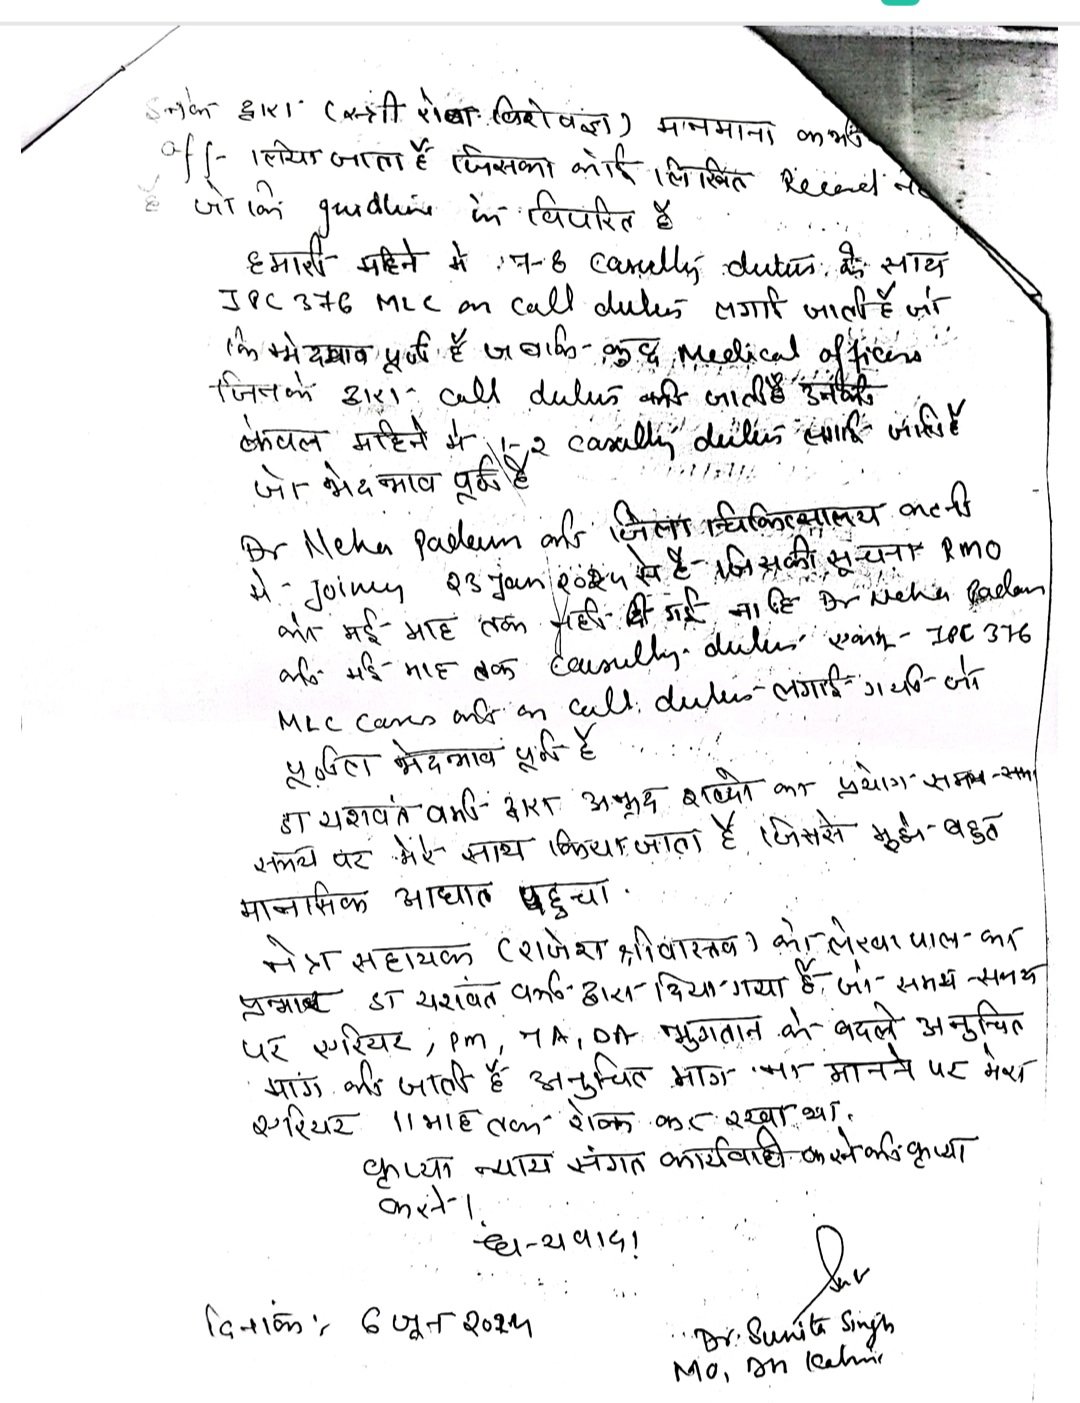 द्वारा (स्त्री रोग विशेषज्ञ) मानमाना
off लिया जाता है जिसका कोई लिखित Record
है जो कि guidline के विपरित है
हमारी महिने मे 7-8 casulty duties के साथ
IPC 376 MLC on call duties लगाई जाती है जो
कि भेदभाव पूर्ण है जबकि कुछ Medical officers
जिनके द्वारा call duties की जाती है उनकी
केवल महिने मे 1-2 casulty duties लगाई जाति है
जो भेदभाव पूर्ण है
Dr Neha Padam की जिला चिकित्सालय कटनी
मे Joining 23 Jan 2024 से है जिसकी सूचना RMO
को मई माह तक नही दी गई ना हि Dr Neha Padam
की मई माह तक casulty duties एवम IPC 376
MLC cases की on call duties लगाई गयी जो
पूर्णता भेदभाव पूर्ण है
डा यशवंत वर्मा द्वारा अभद्र शब्दो का प्रयोग समय-समय
समय पर मेरे साथ किया जाता है जिससे मुझे बहुत
मानसिक आघात पहुचा.
नेत्र सहायक (राजेश श्रीवास्तव) को लेखापाल का
प्रभार डा यशवंत वर्मा द्वारा दिया गया है, जो समय-समय
पर एरियर, PM, TA, DA भुगतान के बदले अनुचित
मांग की जाती है अनुचित मांग ना मानने पर मेरा
एरियर 11 माह तक रोक कर रखा था.
कृप्या न्याय संगत कार्यवाही करने की कृप्या
करे।
धन्यवाद!
दिनांक: 6 जून 2024
Dr. Sunita Singh
MO, DH Katni